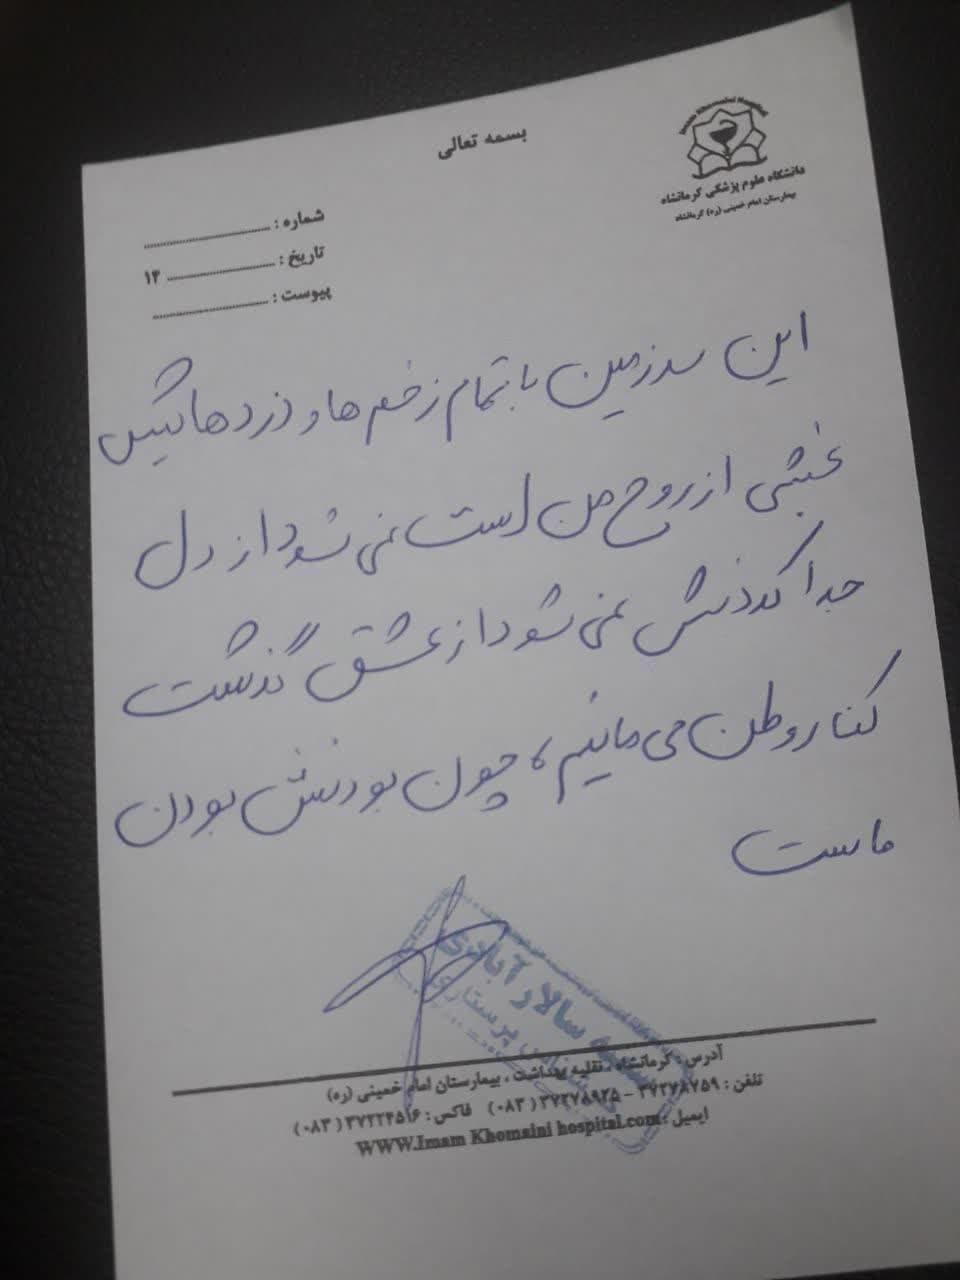 بسمه تعالی
Imam Khomaini Hospital
دانشگاه علوم پزشکی کرمانشاه
بیمارستان امام خمینی (ره) کرمانشاه
شماره :
تاریخ : ۱۴
پیوست :
این سرزمین با تمام زخم ها و دردهایش
بخشی از روح من است نمی شود از دل
جدا کردنش نمی شود از عشق گذشت
کنار وطن می مانیم ، چون بودنش بودن
ماست
سالار آبادی
پرستاری
آدرس : کرمانشاه ، نقلیه بهداشت ، بیمارستان امام خمینی (ره)
تلفن : ۳۷۲۷۸۷۵۹ - ۳۷۲۷۸۹۲۵ (۰۸۳) فاکس : ۳۷۲۲۴۵۱۶ (۰۸۳)
ایمیل : WWW.Imam Khomaini hospital.com